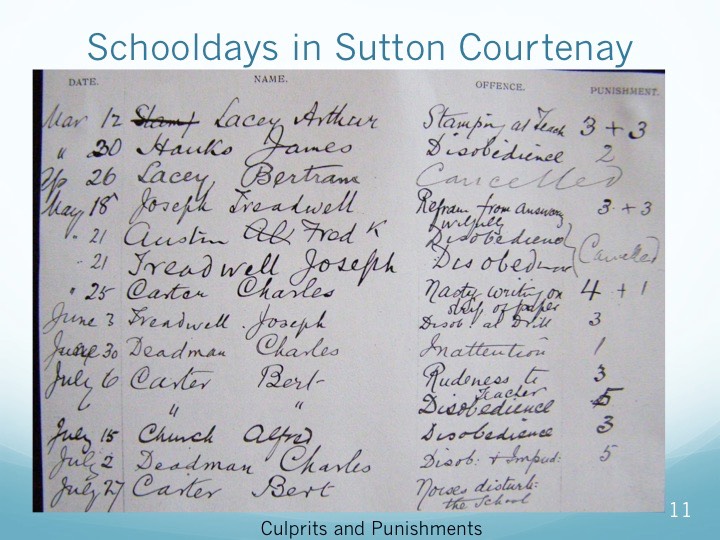 Schooldays in Sutton Courtenay
DATE. NAME. OFFENCE. PUNISHMENT.
Mar 12 Lacey Arthur Stamping at Teach 3 + 3
" 30 Hanks James Disobedience 2
Ap 26 Lacey Bertram Cancelled
May 18 Joseph Treadwell Refrain from answering 3 + 3
wilfully
" 21 Austin Fred K Disobedience
" 21 Treadwell Joseph Disobedience Cancelled
" 25 Carter Charles Nasty writing on 4 + 1
strip of paper
June 3 Treadwell Joseph Disob. at Drill 3
June 30 Deadman Charles Inattention 1
July 6 Carter Bert Rudeness to 3
Teacher
" " Disobedience 5
July 15 Church Alfred Disobedience 3
July 2 Deadman Charles Disob: + Impud: 5
July 27 Carter Bert Noises disturb:
the School
11
Culprits and Punishments